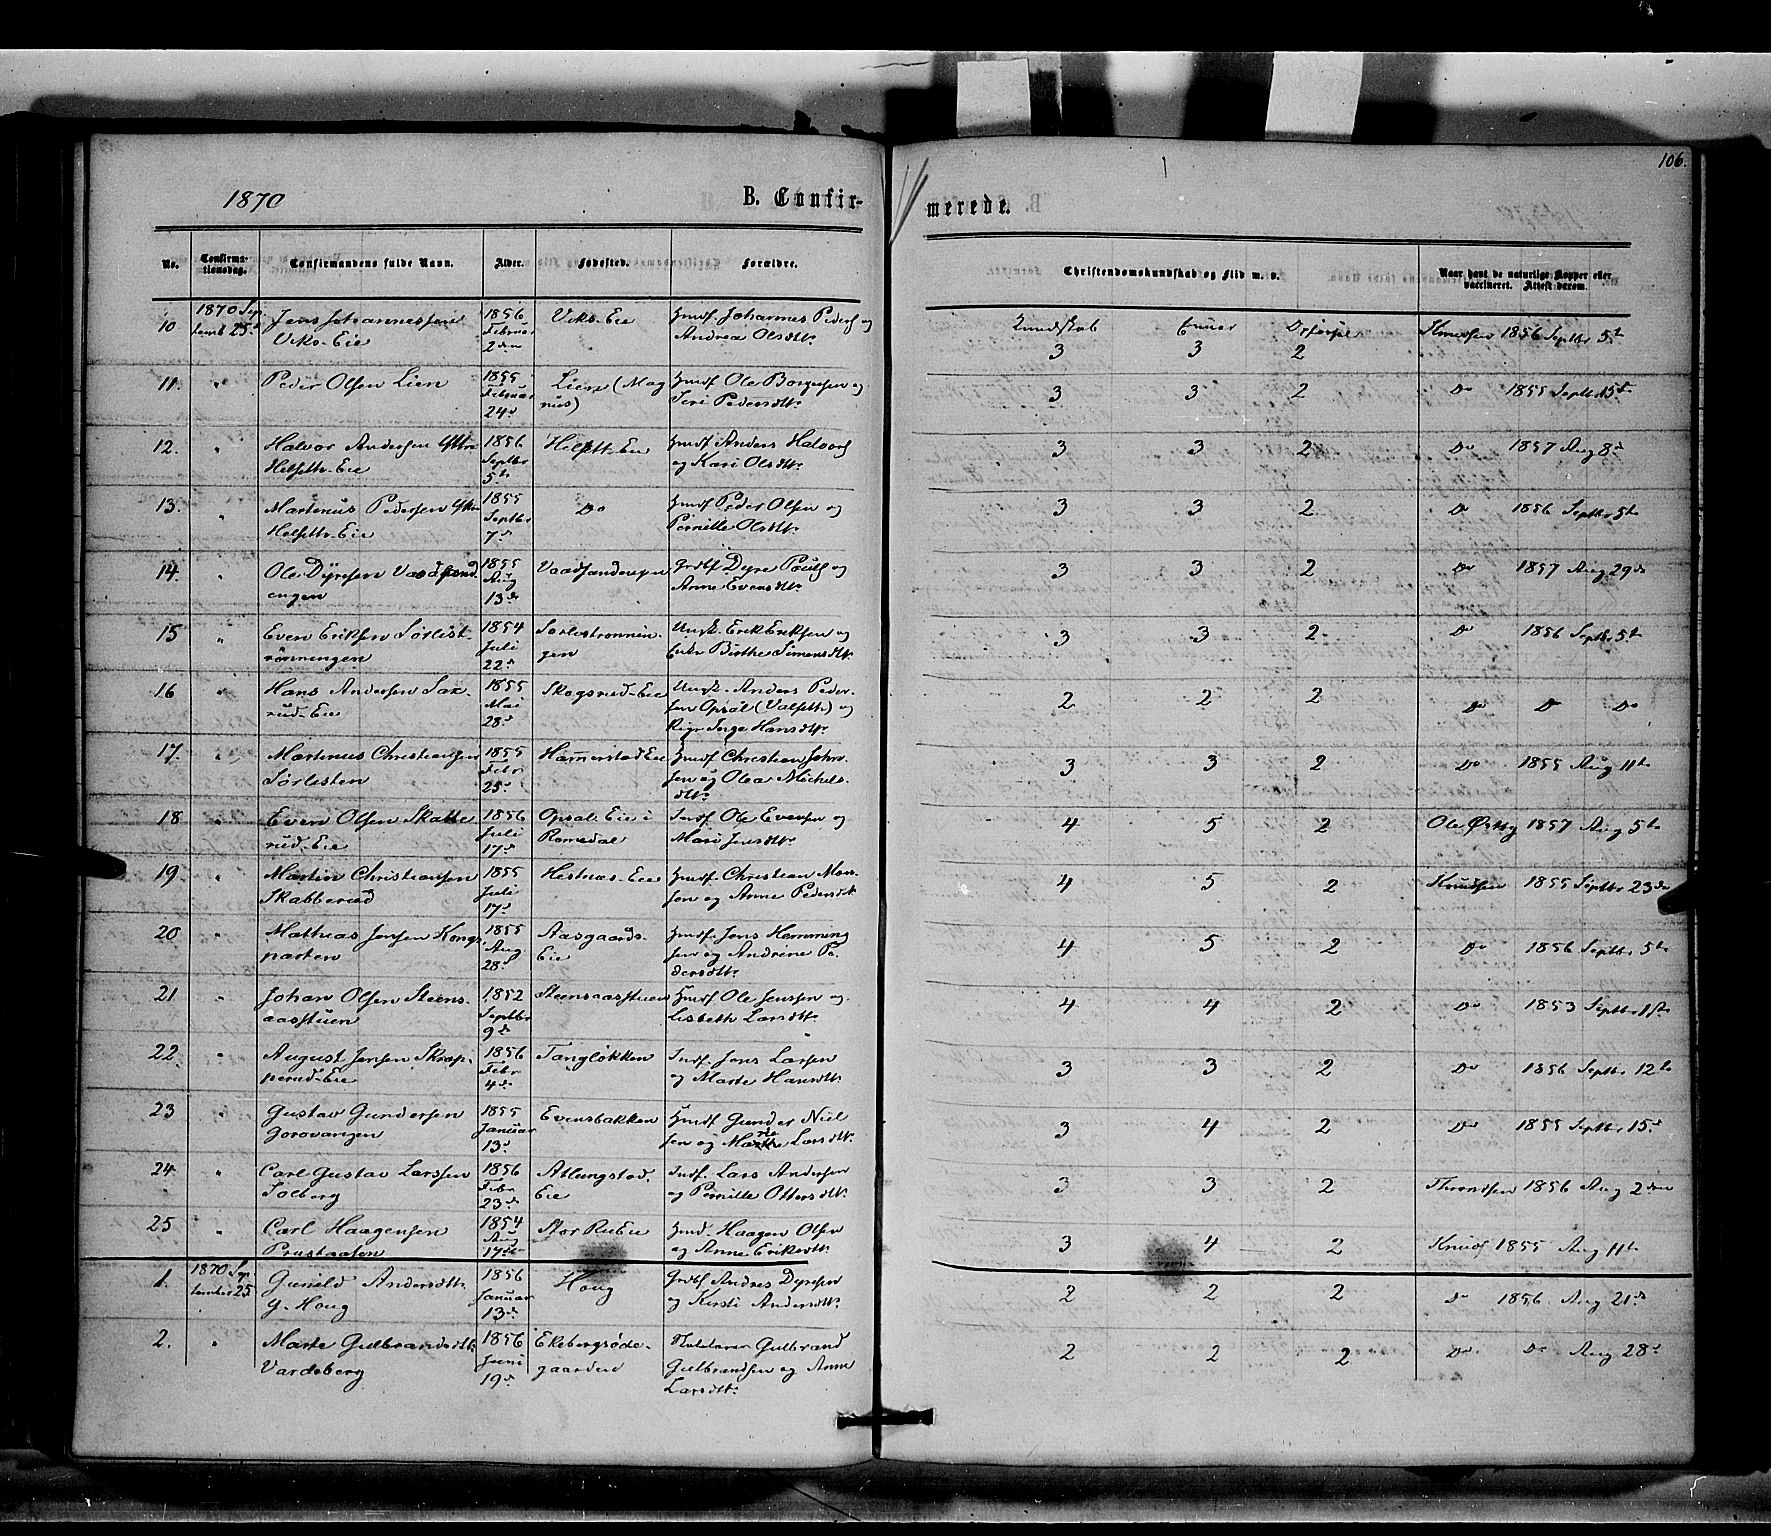 106.
1870
B. Confirmerede.
No. Confirmationsdag. Confirmandens fulde Navn. Alder. Fødested. Forældre. Christendomskundskab og Flid m. v. Naar havt de naturlige Kopper eller vaccineret. Attest derom.
10 1870 Septemb 25 Jens Johannessen Viks-Eie 1856 Februar 2den Viks-Eie Huusf Johannes Peders og Andrea Olsdtr Kundskab 3 3 2 Knudsen 1856 Septbr 5te
11. " Peder Olsen Lien 1855 Februar 24d Lien (Magnus) Huusf Ole Borgersen og Siri Pedersdtr 3 3 2 Do 1855 Septbr 15d
12. " Halvor Andersen Helseth-Eie 1856 Septbr 5te Helseth-Eie Huusf Anders Halvors og Kari Olsdtr 3 3 2 Do 1857 Aug 8d
13. " Martinus Pedersen Helseth-Eie 1855 Septbr 7d Do Huusf Peder Olsen og Pernille Olsdtr 3 3 2 Do 1856 Septbr 5te
14. " Ole Dyresen Vaadsandengen 1855 Aug 13de Vaadsandengen Grdbf Dyre Pouls og Anne Evensdtr 3 3 2 Do 1857 Aug 29de
15 " Even Eriksen Sørlistrønningen 1854 Juli 22d Sørlistrønningen Ungk. Erik Eriksen og Enke Birthe Simensdtr 3 3 2 Do 1856 Septbr 5te
16 " Hans Andersen Saxrud-Eie 1855 Mai 28d Skogsrud-Eie Ungk. Anders Pedersen Opsal (Valseth) og Pige Inge Hansdtr 2 2 2 Do Do Do
17. " Martinus Christiansen Sørlisten 1855 Febr 25d Hammerstad Eie Huusf Christian Johnsen og Olea Michelsdtr 3 3 2 Do 1855 Aug 11te
18 " Even Olsen Skatterud-Eie 1856 Juli 17d Opsal-Eie i Romedal Indf Ole Evensen og Mari Jensdtr 4 5 2 Ole Østby 1857 Aug 5te
19 " Martin Christiansen Skabberud 1855 Juli 17d Hestnæs-Eie Huusf Christian Monsen og Anne Pedersdtr 4 5 2 Knudsen 1855 Septbr 23de
20 " Mathias Jensen Kongsparten 1855 Aug 28d Aasgaards-Eie Huusf. Jens Hemmingsen og Andrine Pedersdtr 4 5 2 Do 1856 Septbr 5te
21 " Johan Olsen Steensaasstuen 1852 Septbr 9d Steensaasstuen Huusf Ole Jensen og Lisbeth Larsdtr 4 4 2 Do 1853 Septbr 1ste
22 " August Jensen Skrapperud-Eie 1856 Febr 4de Tangløkken Indf. Jens Larsen og Marte Hansdtr 3 3 2 Do 1856 Septbr 12te
23 " Gustav Gundersen Gorovangen 1855 Januar 13d Evensbakken Huusf Gunder Nielsen og Marie Larsdtr 3 4 2 Do 1855 Septbr 15d
24 " Carl Gustav Larssen Solberg 1856 Febr 23de Atlungstad-Eie Indf. Lars Andersen og Pernille Ottersdtr 3 3 2 Throndsen 1856 Aug 2den
25 " Carl Haagensen Præstaasen 1854 Aug 17de Stor Ree Eie Huusf. Haagen Olsen og Anne Eriksdtr 3 4 2 Knuds 1855 Aug 11te
1. 1870 September 25 Gunild Andersdtr Houg 1856 Januar 13de Houg Grdbf Andres Dyresen og Kirsti Andersdtr 2 2 2 Do 1856 Aug 21de
2. " Marte Gulbrandsdtr Vardeberg 1856 Juni 19d Ekebergsødegaarden Gulbrand Gulbrandsen og Anne Larsdtr 2 2 2 Do Do Aug 28d